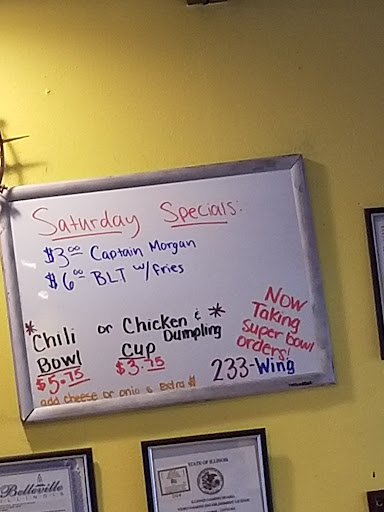 Saturday Specials:
$3.00 Captain Morgan
$6.00 BLT w/fries
*Chili or Chicken & *
Dumpling
Bowl Cup
$5.75 $3.75
add cheese or onio s extra $
Now
Taking
Super bowl
orders!
233-Wing
Belleville
ILLINOIS
STATE OF ILLINOIS
ILLINOIS GAMING BOARD